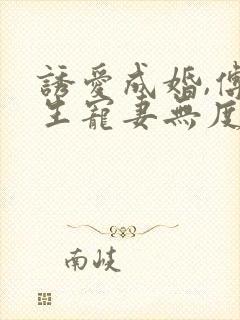 誘愛成婚,傅
生寵妻無度
南峽